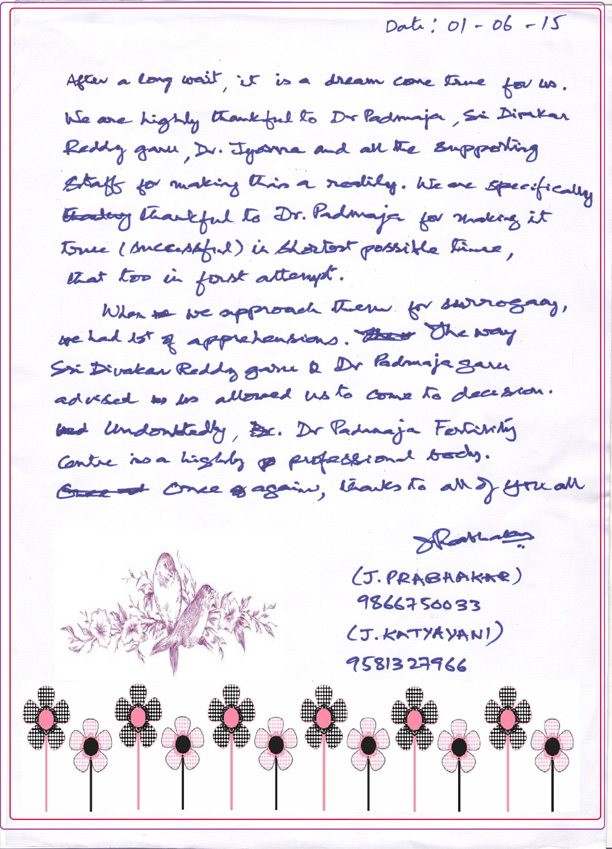 Date: 01-06-15
After a long wait, it is a dream come true for us.
We are highly thankful to Dr Padmaja, Sri Divakar
Reddy garu, Dr. Jyosna and all the supporting
staff for making this a reality. We are specifically
thankful to Dr. Padmaja for making it
true (successful) in shortest possible time,
that too in first attempt.
When we approach them for surrogacy,
we had lot of apprehensions. The way
Sri Divakar Reddy garu & Dr Padmaja garu
advised us allowed us to come to decision.
Undoubtedly, Dr Padmaja Fertility
Centre is a highly professional body.
Once again, thanks to all of you all
(J. PRABHAKAR)
9866750033
(J. KATYAYANI)
9581327966